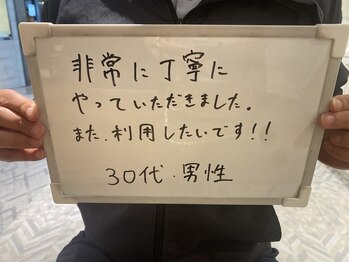 非常に丁寧に
やっていただきました。
また、利用したいです!!
30代・男性